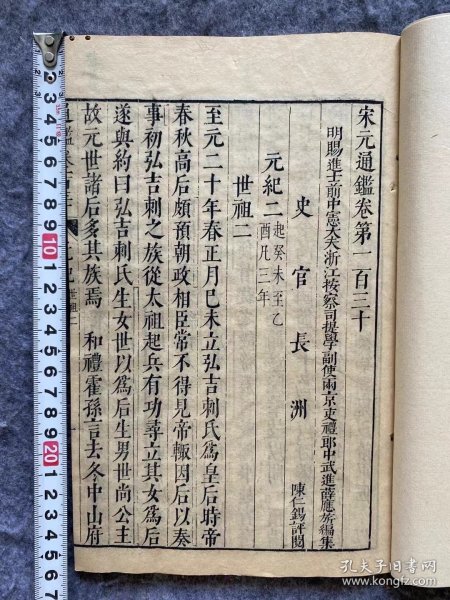 宋元通鑑卷第一百三十
明賜進士前中憲大夫浙江按察司提學副使兩京吏禮郎中武進薛應旂編集
史官長洲陳仁錫評閱
元紀二起癸未至乙酉凡三年
世祖二
至元二十年春正月巳未立弘吉剌氏爲皇后時帝
春秋高后頗預朝政相臣常不得見帝輒因后以奏
事初弘吉剌之族從太祖起兵有功尋立其女爲后
遂與約曰弘吉剌氏生女世以爲后生男世尚公主
故元世諸后多其族焉 和禮霍孫言去冬中山府
孔夫子旧书网
www.kongfz.com